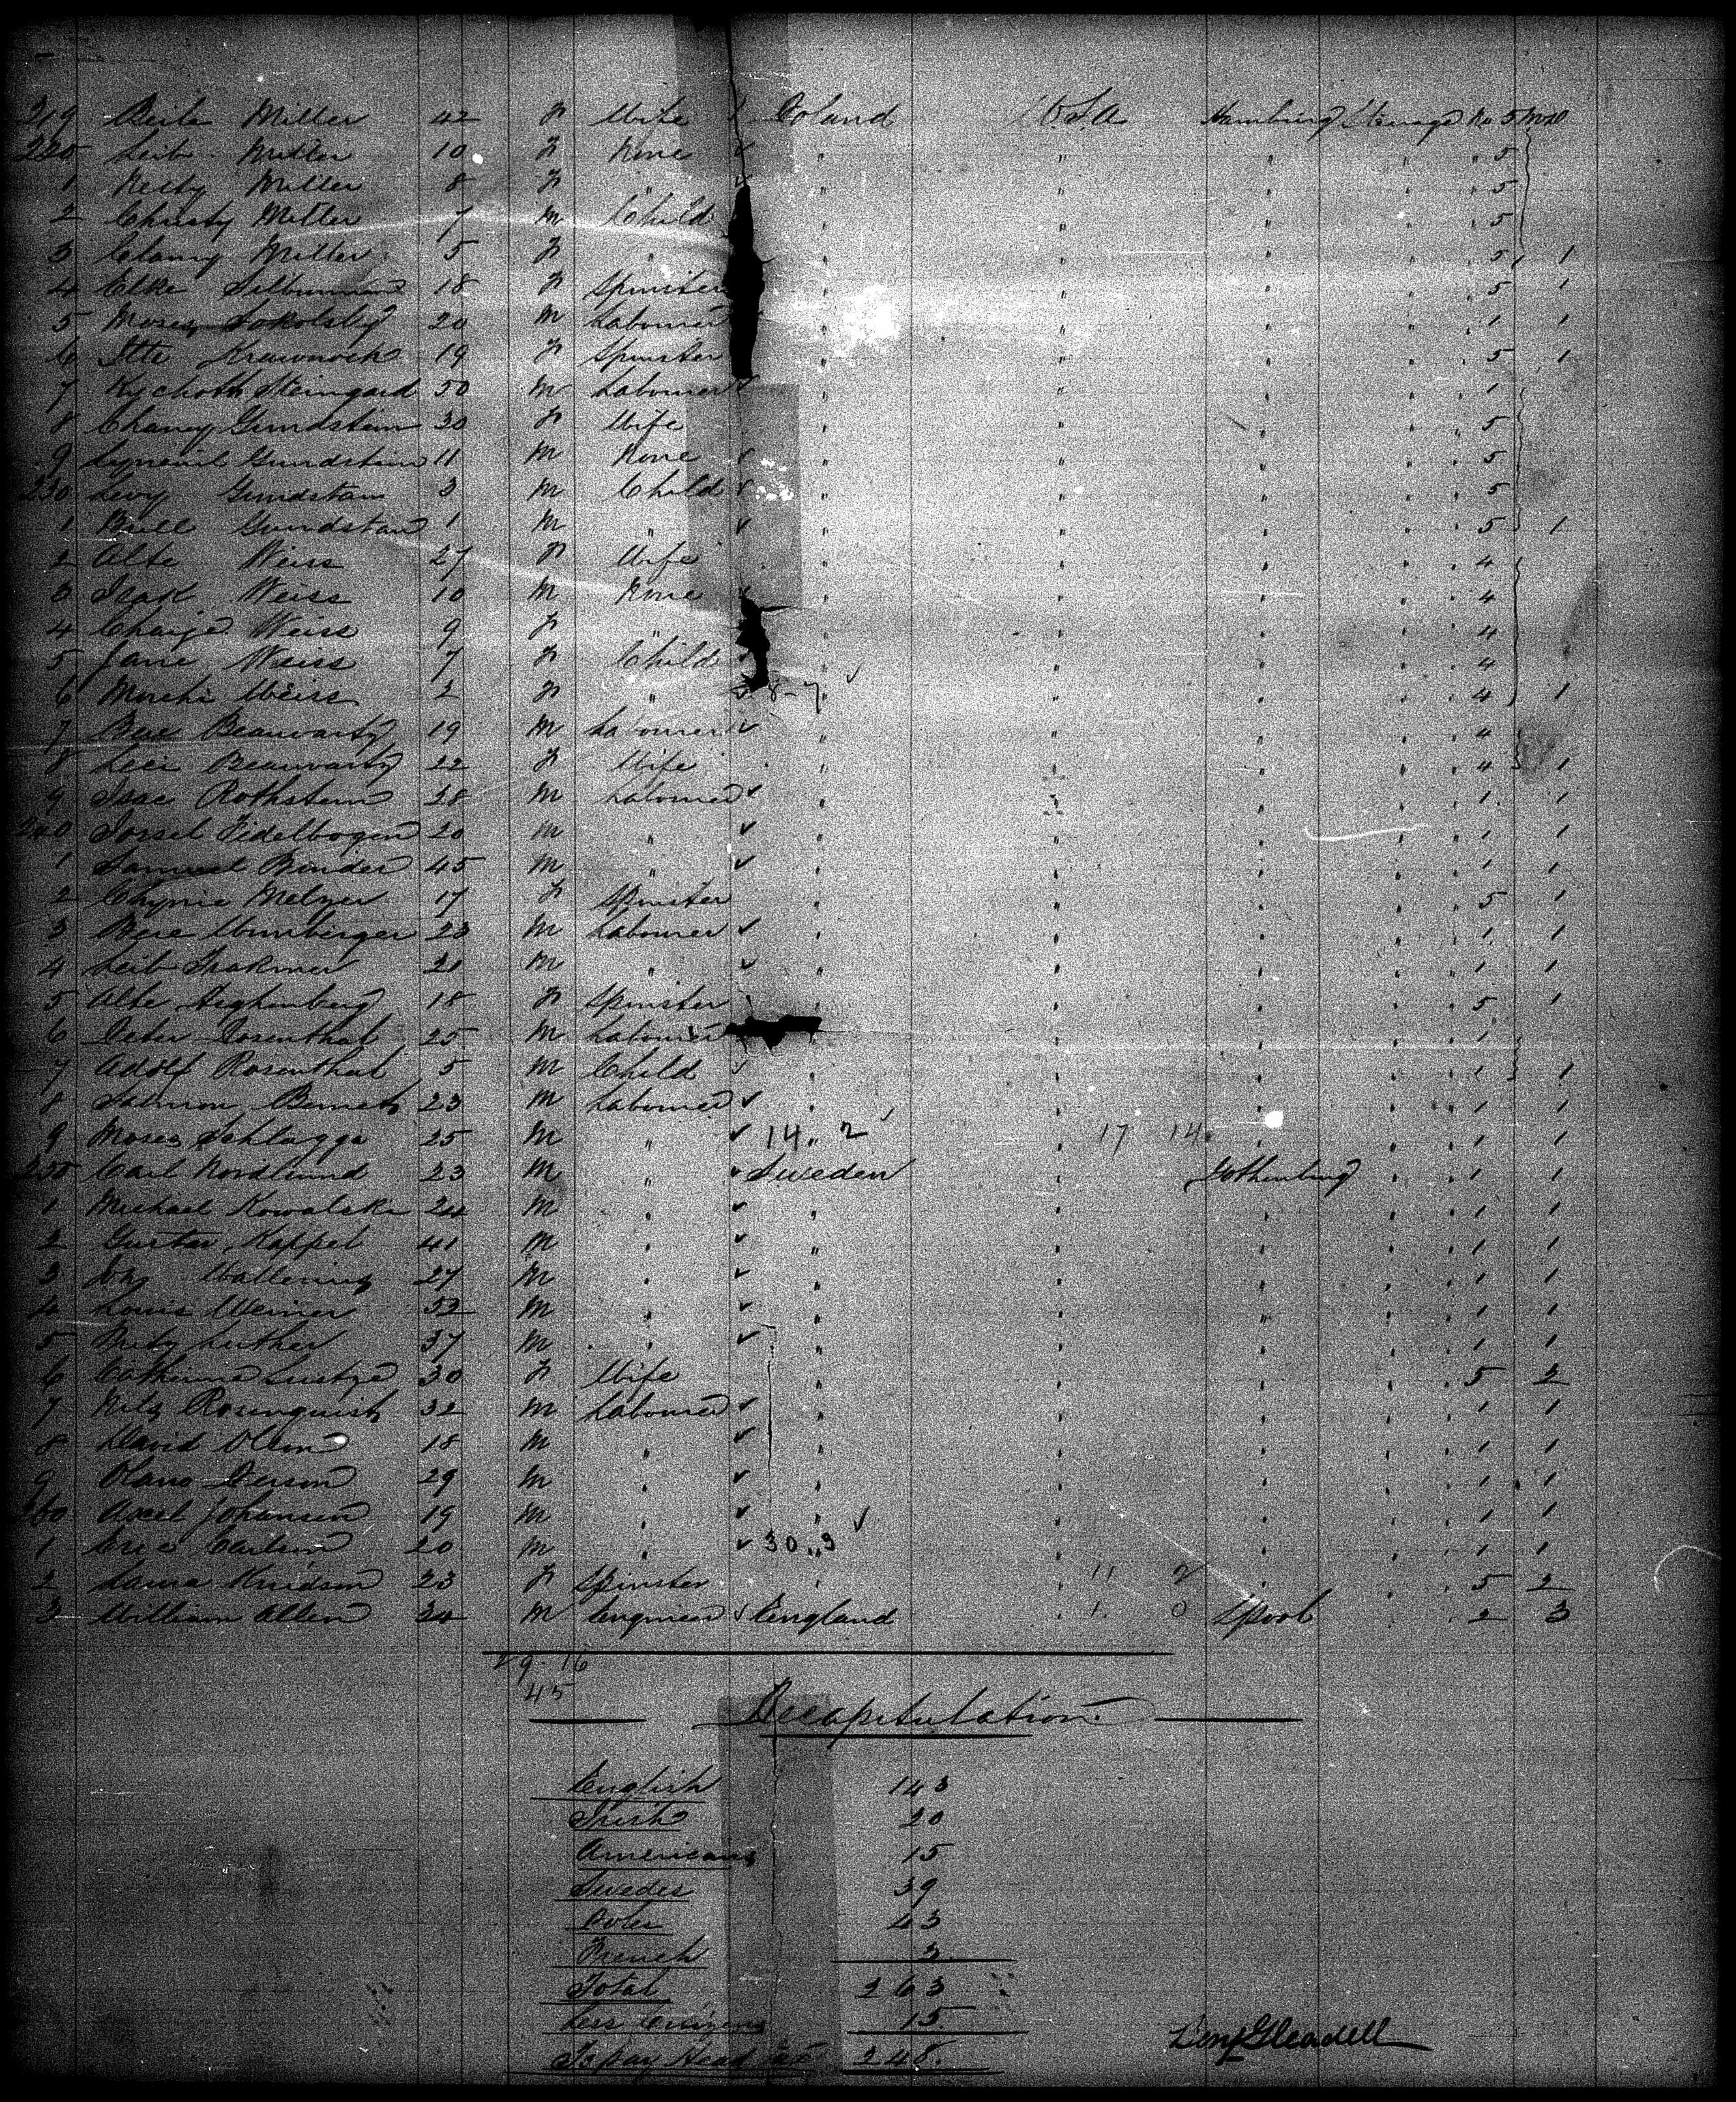 219 Beile Miller 42 F Wife Poland U.S.A Hamburg Steerage No 5
220 Leib Miller 10 F None ✓ " " " " " 5
1 Nesty Miller 8 F " ✓ " " " " " 5
2 Christy Miller 7 M Child " " " " 5
3 Clamy Miller 5 F " " " " " 5 1
4 Elke Silbermann 18 F Spinster " " " " " 5 1
5 Moses Sokolsky 20 M Labourer " " " " " 1 1
6 Itte Krawnock 19 F Spinster " " " " " 5 1
7 Kychoth Steingard 50 M Labourer ✓ " " " " " 1
8 Chaney Gundstein 30 F Wife " " " " " 5
9 Gundstein 11 M None ✓ " " " " " 5
230 Levy Gundstan 3 M Child ✓ " " " " " 5
1 Bull Gundstan 1 M " ✓ " " " " " 5 1
2 Alte Weiss 27 F Wife " " " " " 4
3 Isak Weiss 10 M None ✓ " " " " " 4
4 Chaije Weiss 9 F " " " " " " 4
5 Jane Weiss 7 F Child ✓ " " " " " 4
6 Mochi Weiss 2 F " ✓ 8-7 ✓ " " " " 4 1
7 Bear Beauvarty 19 M Labourer ✓ " " " " " 4
8 Leei Beauvarty 22 F Wife " " " " " 4 1
9 Isac Rothstein 38 M Labourer ✓ " " " " " 1 1
240 Jossel Fidelbogen 20 M " ✓ " " " " " 1 1
1 Samuel Binder 45 M " ✓ " " " " " 1 1
2 Chynie Melzer 17 F Spinster " " " " " 5 1
3 Bere Wunberger 23 M Labourer ✓ " " " " " 1 1
4 Leib 21 M " ✓ " " " " " 1 1
5 Alte 18 F Spinster " " " " " 5 1
6 Peter Rosenthal 25 M Labourer " " " " 1
7 Adolf Rosenthal 5 M Child ✓ " " " " " 1 1
8 Salmon 23 M Labourer ✓ " " " " " 1 1
9 Moses Schlagge 25 M " ✓ 14 " 2 ✓ 17 14 " " " 1 1
250 Carl Nordlund 23 M " ✓ Sweden " Gothenburg " " 1 1
1 Michael Kowalski 24 M " ✓ " " " " " 1 1
2 Gustav Kappel 41 M " ✓ " " " " " 1 1
3 Joh Wallening 27 M " ✓ " " " " " 1 1
4 Louis Weiner 52 M " ✓ " " " " " 1 1
5 Fritz Luther 37 M " ✓ " " " " " 1 1
6 Catherine Lustze 30 F Wife " " " " " 5 2
7 Nils Rosenquist 32 M Labourer ✓ " " " " " 1 1
8 David Olsen 18 M " ✓ " " " " " 1 1
9 Olano Person 29 M " ✓ " " " " " 1 1
260 Axel Johansen 19 M " ✓ " " " " " 1 1
1 Eric Carlson 20 M " ✓ 30 " 9 ✓ " " " " 1 1
2 Laura Knidson 23 F Spinster " " 11 2 " " " 5 2
3 William Allen 34 M Engineer ✓ England " 1 0 Lpool " " 2 3
29-16
45
Recapitulation
English 143
Irish 20
Americans 15
Swedes 39
Poles 43
French 3
Total 263
Less Citizens 15
To pay Head tax 248
Benj Gleadell